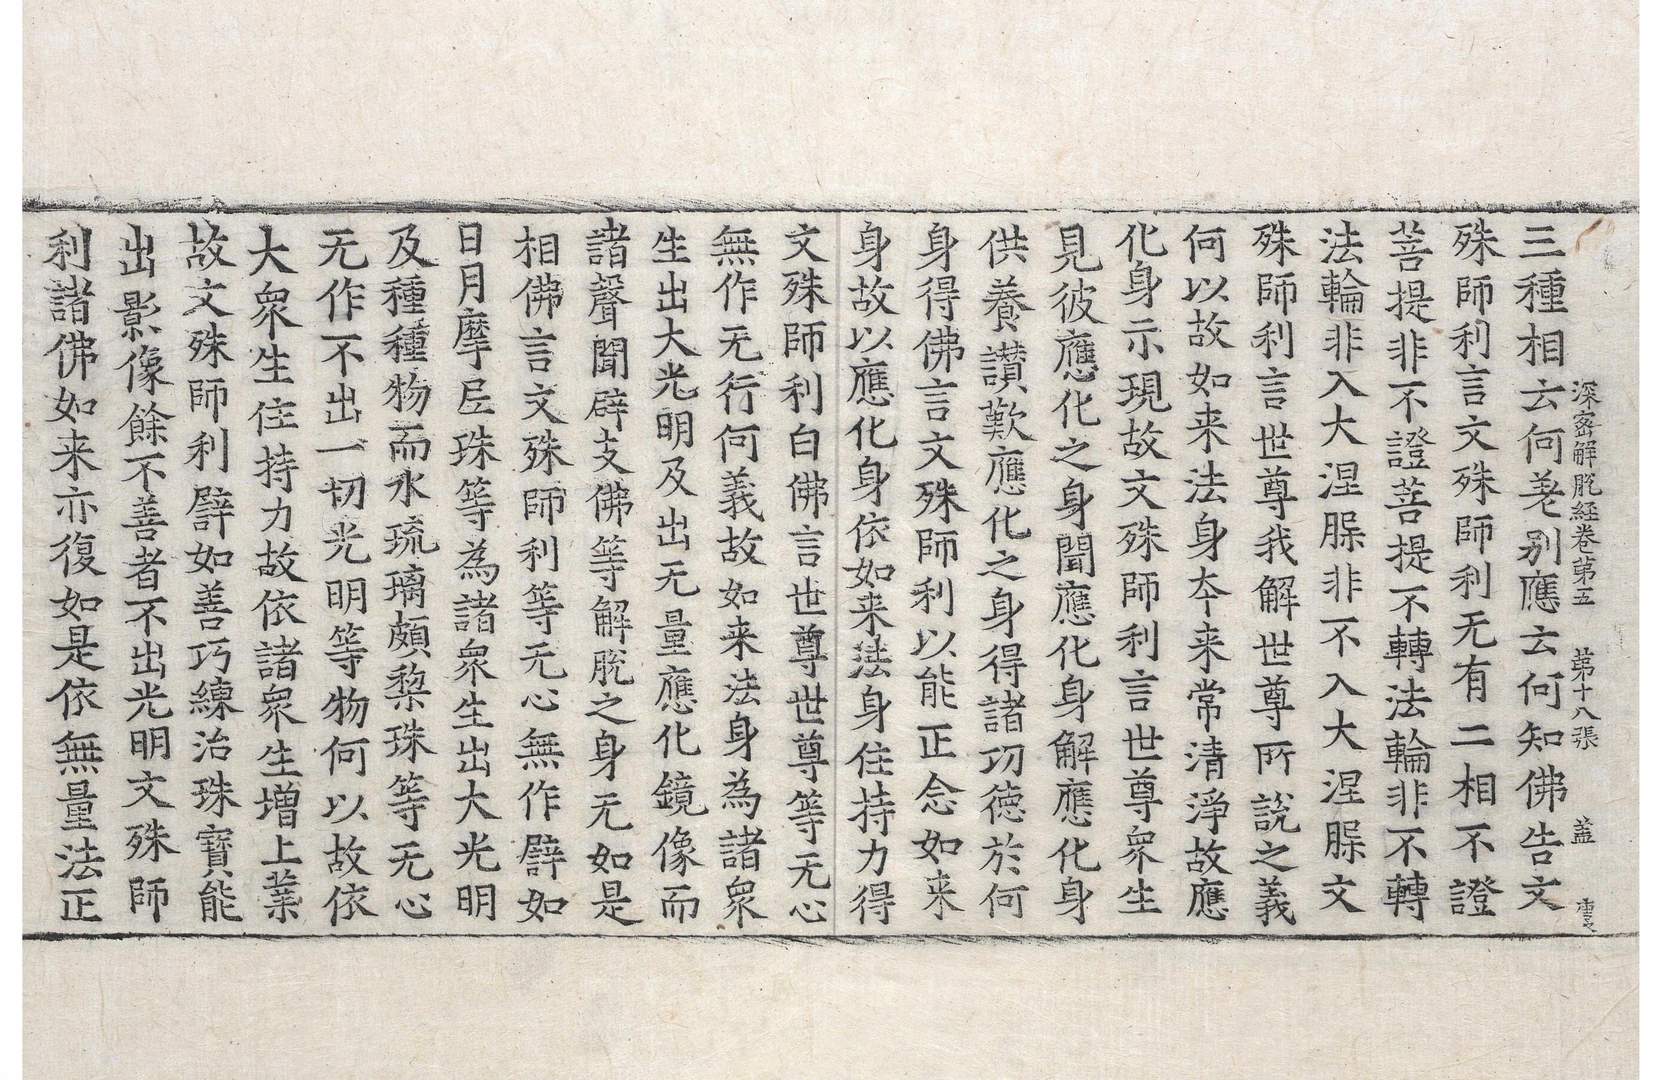 深密解脫經卷第五　第十八張　蓋
三種相云何差别應云何知佛告文
殊師利言文殊師利无有二相不證
菩提非不證菩提不轉法輪非不轉
法輪非入大涅槃非不入大涅槃文
殊師利言世尊我解世尊所說之義
何以故如来法身夲来常清淨故應
化身示現故文殊師利言世尊衆生
見彼應化之身聞應化身解應化身
供養讃歎應化之身得諸功德於何
身得佛言文殊師利以能正念如来
身故以應化身依如来法身住持力得
文殊師利白佛言世尊世尊等无心
無作无行何義故如来法身為諸衆
生出大光明及出无量應化鏡像而
諸聲聞辟支佛等解脫之身无如是
相佛言文殊師利等无心無作譬如
日月摩尼珠等為諸衆生出大光明
及種種物而水琉璃頗梨珠等无心
无作不出一切光明等物何以故依
大衆生住持力故依諸衆生增上業
故文殊師利譬如善巧練治珠寶能
出影像餘不善者不出光明文殊師
利諸佛如来亦復如是依無量法正